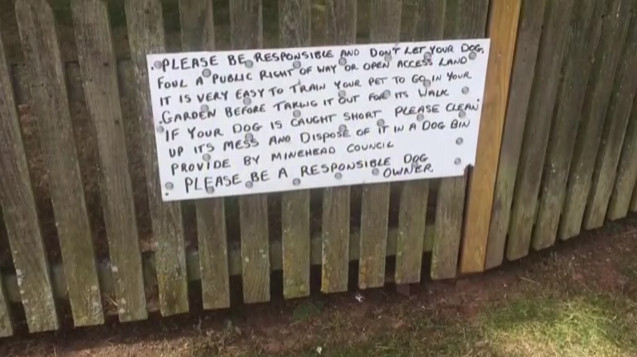 PLEASE BE RESPONSIBLE AND DON'T LET YOUR DOG,
FOUL A PUBLIC RIGHT OF WAY OR OPEN ACCESS LAND
IT IS VERY EASY TO TRAIN YOUR PET TO GO IN YOUR
GARDEN BEFORE TAKING IT OUT FOR ITS WALK
IF YOUR DOG IS CAUGHT SHORT PLEASE CLEAN
UP ITS MESS AND DISPOSE OF IT IN A DOG BIN
PROVIDE BY MINEHEAD COUNCIL
PLEASE BE A RESPONSIBLE DOG
OWNER.